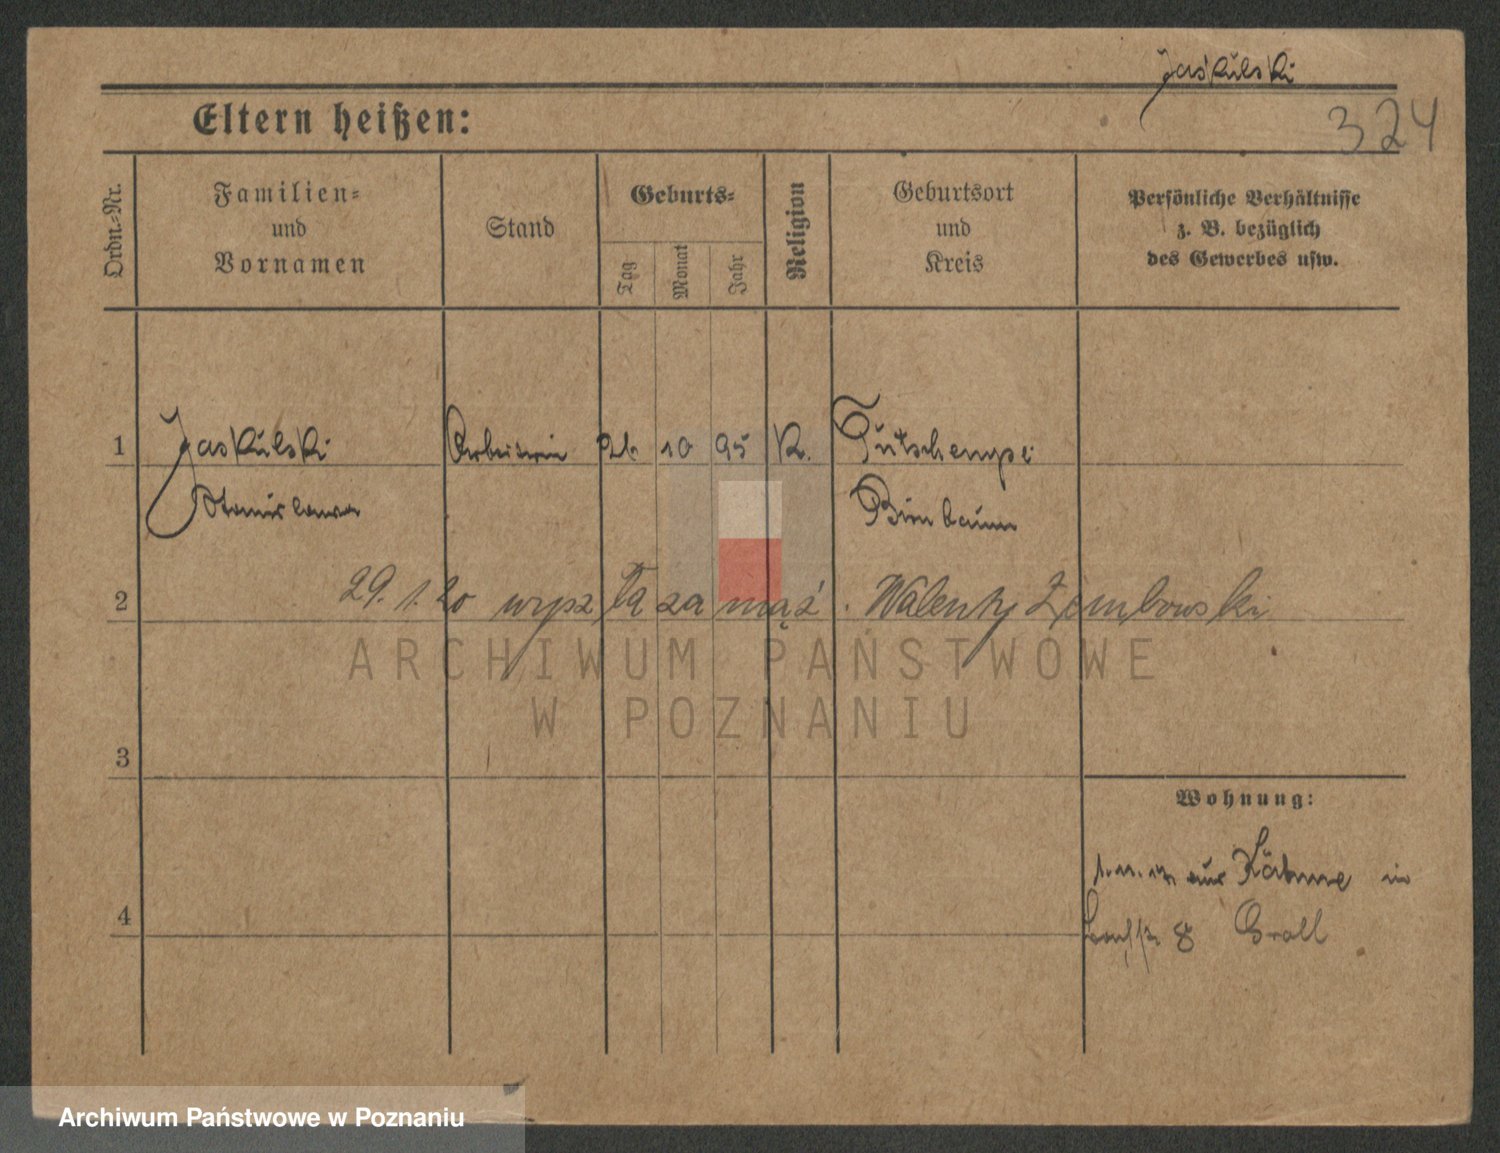 Jaskulski
Eltern heißen:
324
Ordn.=Nr.
Familien=
und
Vornamen
Stand
Geburts=
Tag
Monat
Jahr
Religion
Geburtsort
und
Kreis
Persönliche Verhältnisse
z. B. bezüglich
des Gewerbes usw.
1 Jaskulski Arbeiterin 26. 10 95 K. Gutschempe
Stanislawa Birnbaum
2 29.1.20 wyszła za mąż. Walenty Zembowski
ARCHIWUM PAŃSTWOWE
W POZNANIU
3
Wohnung:
aus Kähme in
4
8 Groll
Archiwum Państwowe w Poznaniu